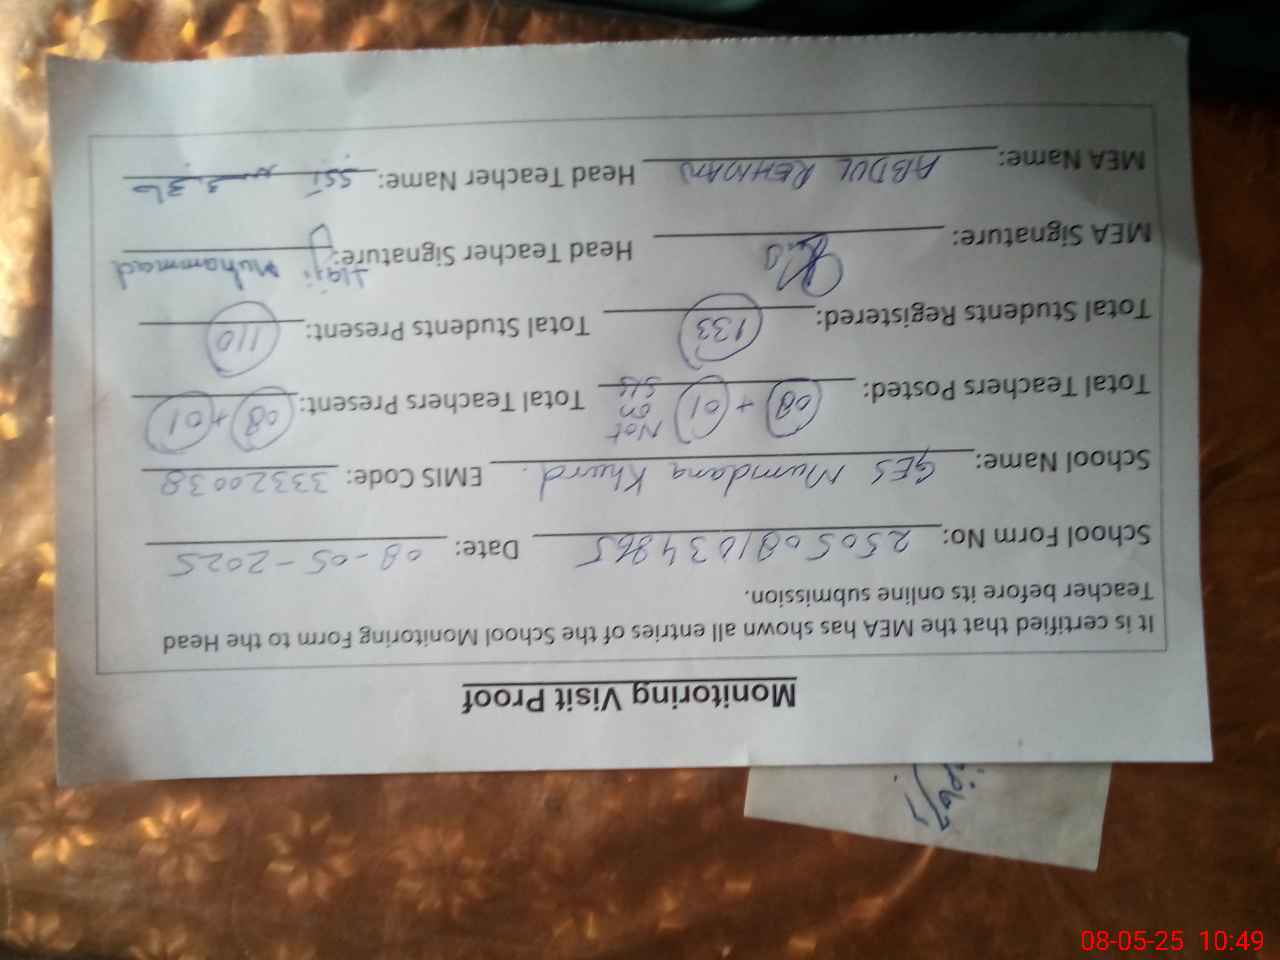 Monitoring Visit Proof
It is certified that the MEA has shown all entries of the School Monitoring Form to the Head
Teacher before its online submission.
School Form No: 2505081034865 Date: 08-05-2025
School Name: GES Mumdana Khurd. EMIS Code: 33320038
Total Teachers Posted: 08 + 01 Not on SIS Total Teachers Present: 08 + 01
Total Students Registered: 133 Total Students Present: 110
MEA Signature: Head Teacher Signature: Haji Muhammad
MEA Name: ABDUL REHMAN Head Teacher Name: SSI
08-05-25 10:49